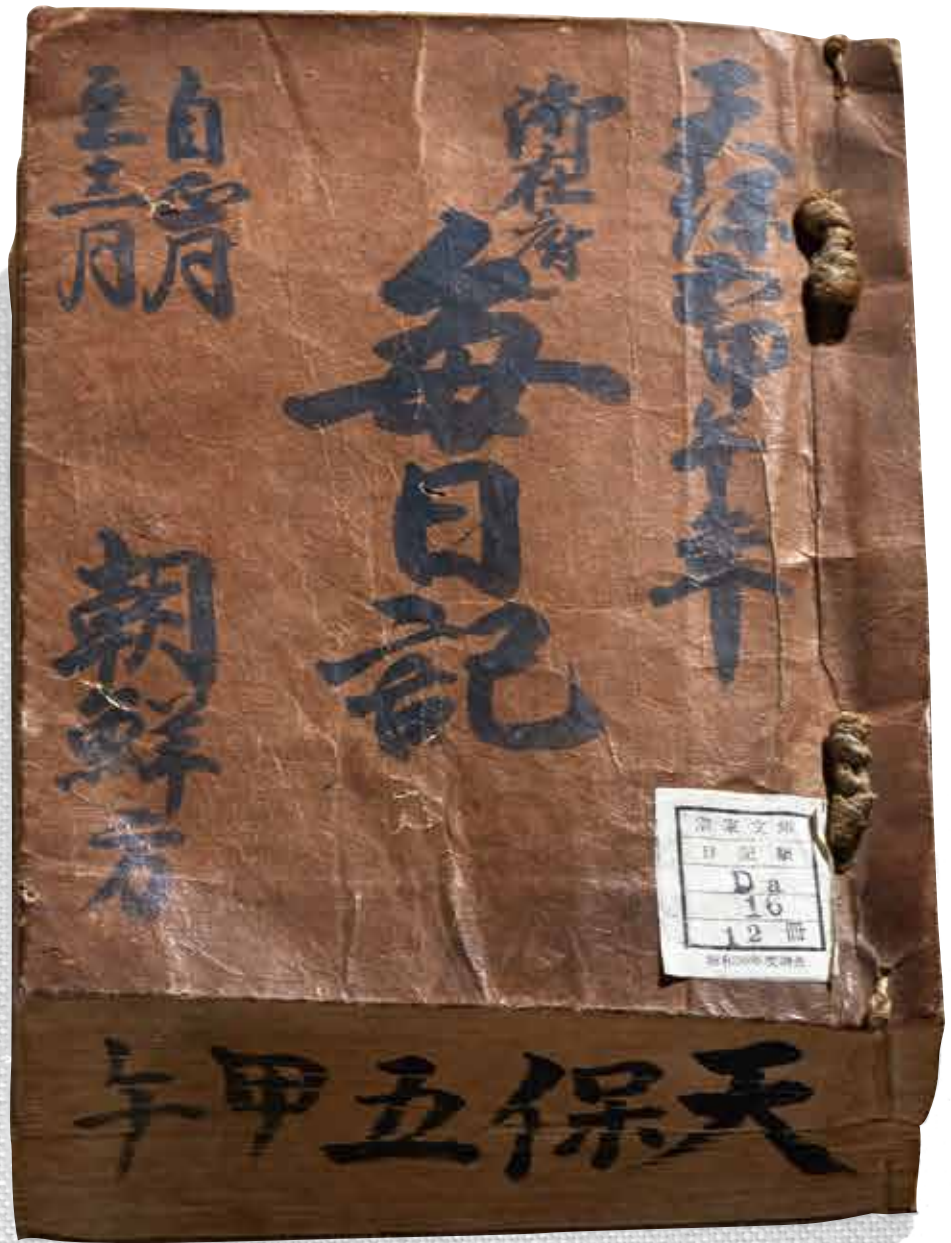 天保五甲午年
御在府
毎日記
自正月
至三月
朝鮮方
宗家文庫
日記類
Da
16
12冊
天保五甲午